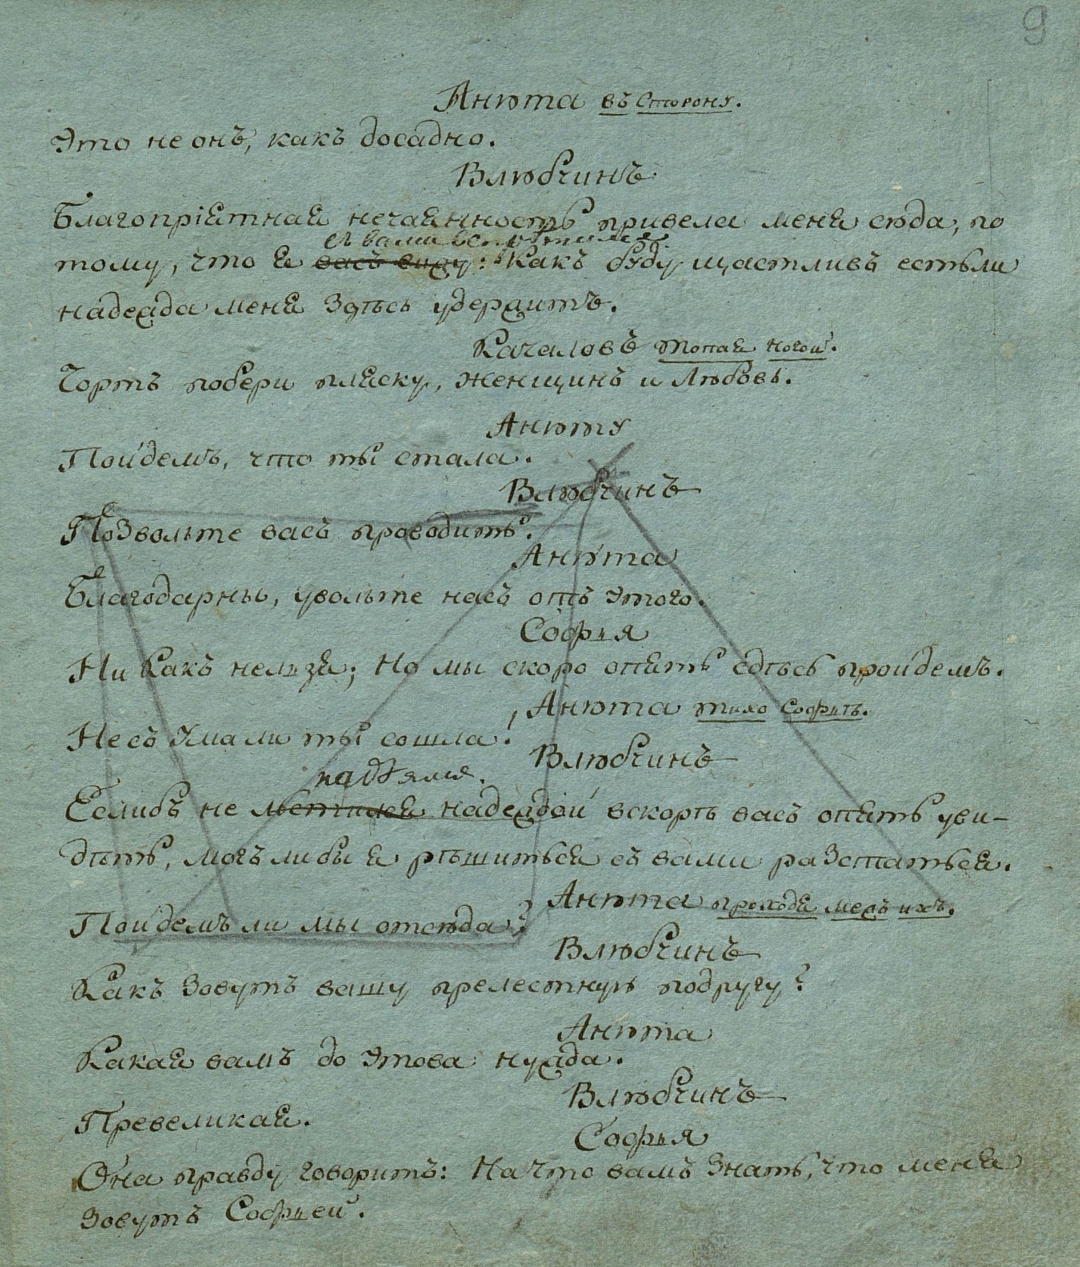 9
Анюта въ сторону.
Это не онъ, какъ досадно.
Влюбчинъ
Благопріятная нечаянность привела меня сюда, по
съ вами встретился
тому, что я васъ вижу: Какъ буду щастливъ естьли
надежда меня здѣсь удержитъ.
Качаловъ топая ногой.
Чортъ побери пляску, женщинъ и любовь.
Анюту
Пойдемъ, что ты стала.
Влюбчинъ
Позвольте васъ проводить.
Анюта
Благодарны, увольте насъ отъ этого.
Софья
Ни какъ нельзя; Но мы скоро опять сдѣсь пройдемъ.
Анюта тихо Софьѣ.
Не съ Ума ли ты сошла!
Влюбчинъ
надѣялся.
Еслибъ не надеждой вскорѣ васъ опять уви-
дѣть, могъ ли бы я рѣшиться съ вами разстаться.
Анюта проходя межъ ихъ.
Пойдемъ ли мы отсюда?
Влюбчинъ
Какъ зовутъ вашу прелестную подругу?
Анюта
Какая вамъ до этова нужда.
Влюбчинъ
Превеликая.
Софья
Она правду говоритъ: На что вамъ знать, что меня
зовутъ Софьей.